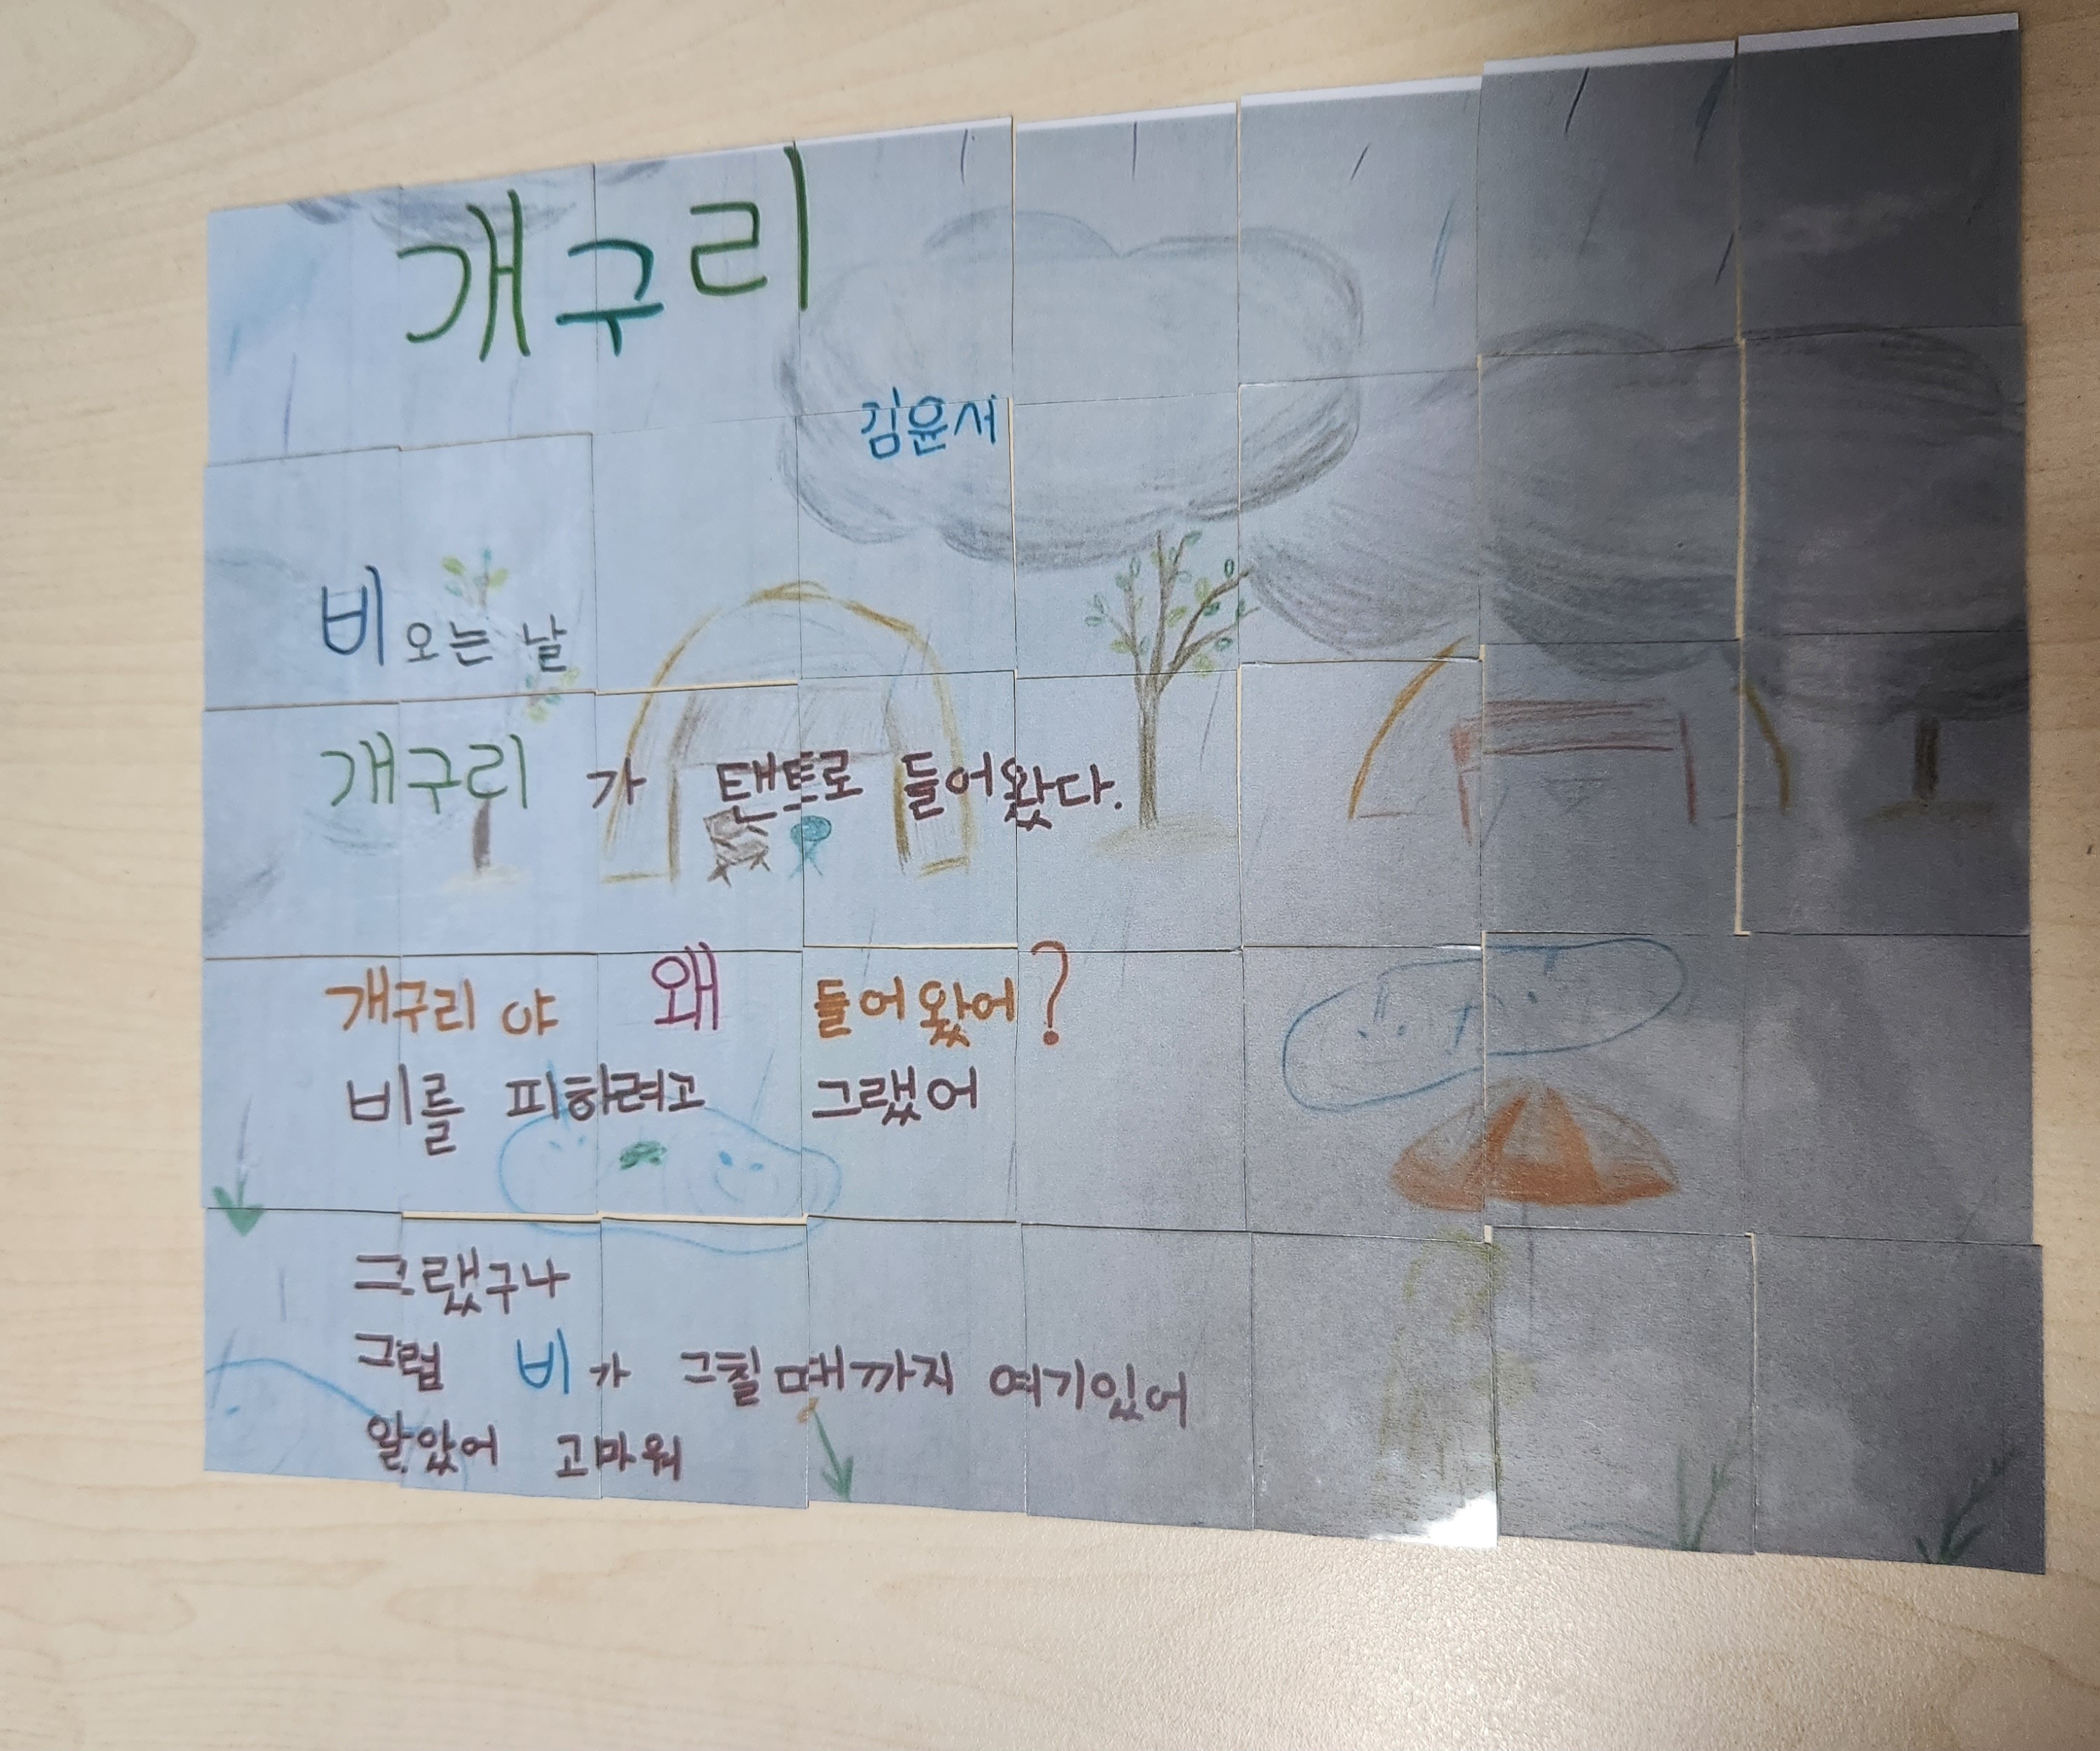 개구리
김윤서
비 오는 날
개구리 가 탠트로 들어왔다.
개구리 야 왜 들어왔어?
비를 피하려고 그랬어
그랬구나
그럼 비가 그칠때까지 여기있어
알았어 고마워